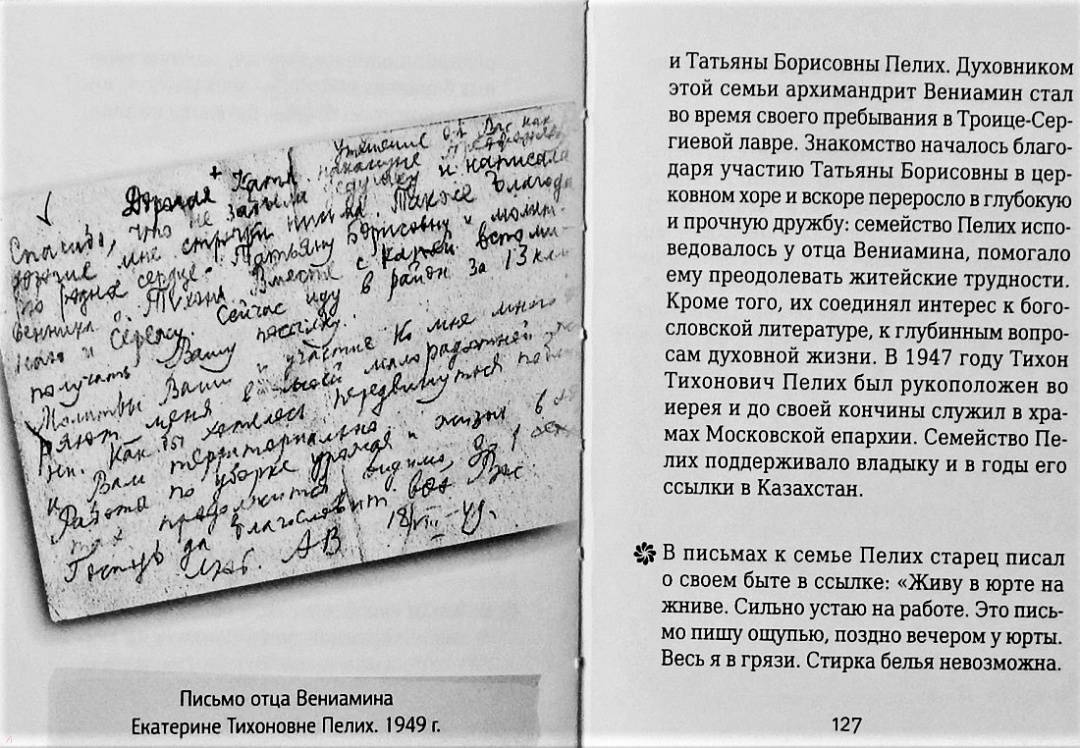 утешение от Вас как
Дорогая Катя
Спасибо, что не забыли дедушку и написала
дорогие мне строчки письма. Также благода
Татьяну Борисовну и молит-
венника о. Тихона. Вместе с Катей вспоми-
наю и Сережу. Сейчас иду в район за 13 кл
получать Вашу посылку.
Молитвы Ваши и участие ко мне много
меня в моей малорадостной
Как бы хотелось передвинуться
к Вам территориально.
Работа по уборке урожая и жизнь в
продолжится, видимо, до 1
Господь да благословит всех Вас
Люб. АВ 18/VIII-49г.
Письмо отца Вениамина
Екатерине Тихоновне Пелих. 1949 г.
и Татьяны Борисовны Пелих. Духовником
этой семьи архимандрит Вениамин стал
во время своего пребывания в Троице-Сер-
гиевой лавре. Знакомство началось благо-
даря участию Татьяны Борисовны в цер-
ковном хоре и вскоре переросло в глубокую
и прочную дружбу: семейство Пелих испо-
ведовалось у отца Вениамина, помогало
ему преодолевать житейские трудности.
Кроме того, их соединял интерес к бого-
словской литературе, к глубинным вопро-
сам духовной жизни. В 1947 году Тихон
Тихонович Пелих был рукоположен во
иерея и до своей кончины служил в хра-
мах Московской епархии. Семейство Пе-
лих поддерживало владыку и в годы его
ссылки в Казахстан.
В письмах к семье Пелих старец писал
о своем быте в ссылке: «Живу в юрте на
жниве. Сильно устаю на работе. Это пись-
мо пишу ощупью, поздно вечером у юрты.
Весь я в грязи. Стирка белья невозможна.
127